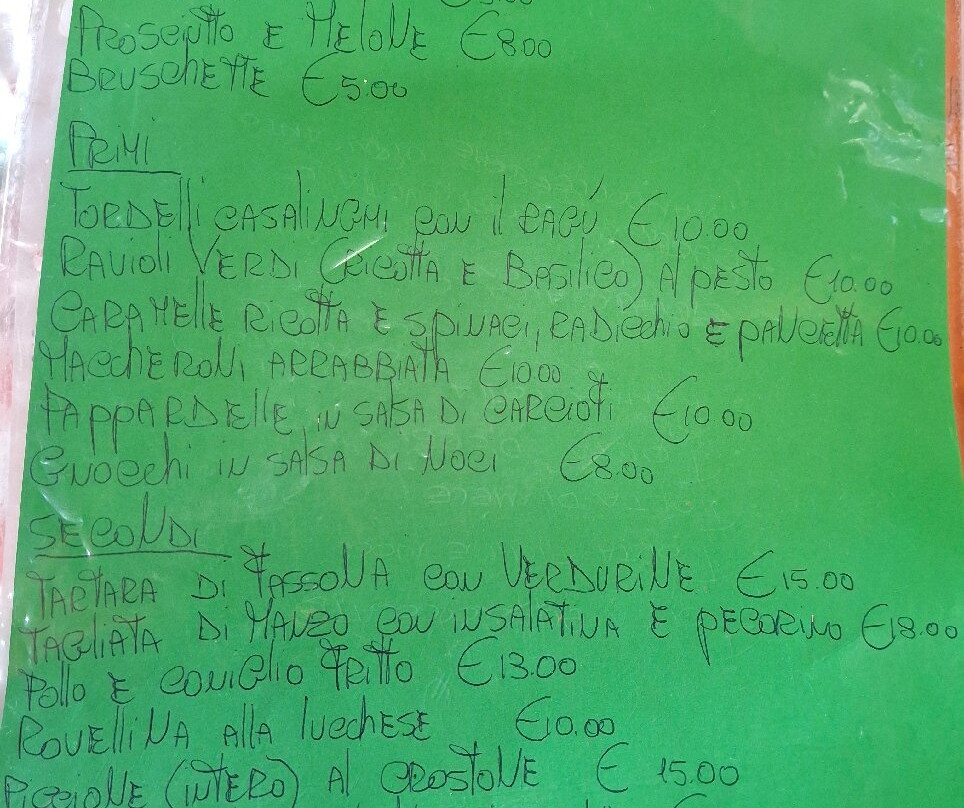 PROSCIUTTO E MELONE €8.00
BRUSCHETTE €5.00
PRIMI
TORDELLI CASALINGHI CON IL RAGÚ €10.00
RAVIOLI VERDI (RICOTTA E BASILICO) AL PESTO €10.00
CARAMELLE RICOTTA E SPINACI, RADICCHIO E PANCETTA €10.00
MACCHERONI ARRABBIATA €10.00
PAPPARDELLE IN SALSA DI CARCIOFI €10.00
GNOCCHI IN SALSA DI NOCI €8.00
SECONDI
TARTARA DI FASSONA CON VERDURINE €15.00
TAGLIATA DI MANZO CON INSALATINA E PECORINO €18.00
POLLO E CONIGLIO FRITTO €13.00
ROVELLINA ALLA LUCCHESE €10.00
PICCIONE (INTERO) AL CROSTONE € 15.00